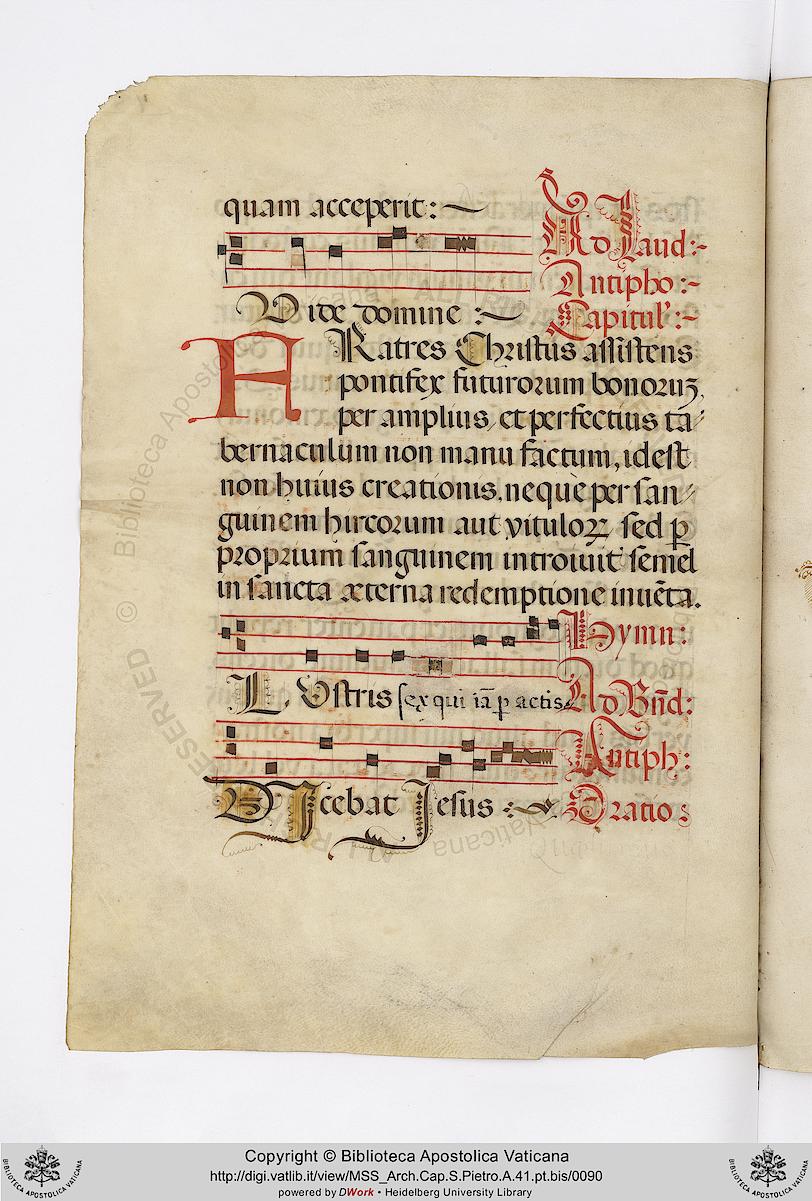 quam acceperit :~
Ad Laud :~
Antipho :~
Vide domine :~ Capitul' :~
FRatres Christus assistens
pontifex futurorum bonoruʒ,
per amplius, et perfectius ta⸗
bernaculum non manu factum, id est
non huius creationis, neque per san⸗
guinem hircorum aut vituloꝝ sed ꝑ
proprium sanguinem introiuit semel
in sancta æterna redemptione inuēta.
Hymn :
L Vstris sex qui iā ꝑactis. Ad Bn̄d :
Antiph :
DIcebat Jesus :~ Oratio :
© Biblioteca Apostolica Vaticana
RESERVED
Copyright © Biblioteca Apostolica Vaticana
http://digi.vatlib.it/view/MSS_Arch.Cap.S.Pietro.A.41.pt.bis/0090
powered by DWork • Heidelberg University Library
BIBLIOTECA APOSTOLICA VATICANA
BIBLIOTECA APOSTOLICA VATICANA